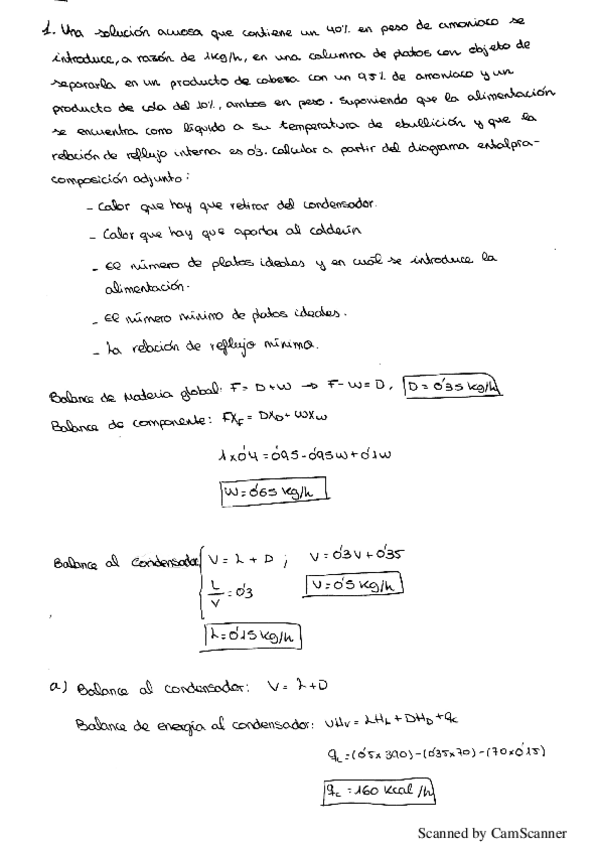 1. Una solución acuosa que contiene un 40% en peso de amoniaco se
introduce, a razón de 1kg/h, en una columna de platos con objeto de
separarla en un producto de cabeza con un 95% de amoniaco y un
producto de cola del 10%, ambos en peso. Suponiendo que la alimentación
se encuentra como líquido a su temperatura de ebullición y que la
relación de reflujo interna es 0'3. Calcular a partir del diagrama entalpía-
composición adjunto:
- Calor que hay que retirar del condensador.
- Calor que hay que aportar al calderín
- El número de platos ideales y en cuál se introduce la
alimentación.
- El número mínimo de platos ideales.
- La relación de reflujo mínima.
Balance de Materia global: F = D + W → F - W = D, D = 0'35 kg/h
Balance de componente: FXF = DXD + WXW
1 x 0'4 = 0'95 - 0'95W + 0'1W
W = 0'65 kg/h
Balance al condensador { V = L + D ; V = 0'3V + 0'35
L/V = 0'3 V = 0'5 kg/h
L = 0'15 kg/h
a) Balance al condensador: V = L + D
Balance de energía al condensador: VHV = LHL + DHD + qc
qc = (0'5 x 390) - (0'35 x 70) - (70 x 0'15)
qc = 160 Kcal/h
Scanned by CamScanner